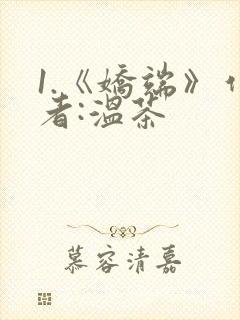 1.《嬌端》作
者:溫茶
慕容清嘉